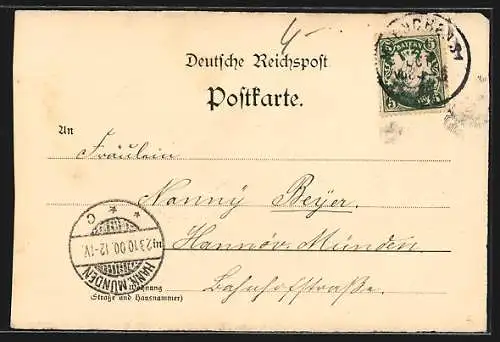 4
Deutsche Reichspost
Postkarte.
MÜNCHEN 31
BAYERN
5 5
An
Fräulein
Nanny Beyer.
in Hannov. Münden
Bahnhofstraße.
Wohnung
(Straße und Hausnummer)
HANN. MÜNDEN
23.10.00.12-1V.
* * C